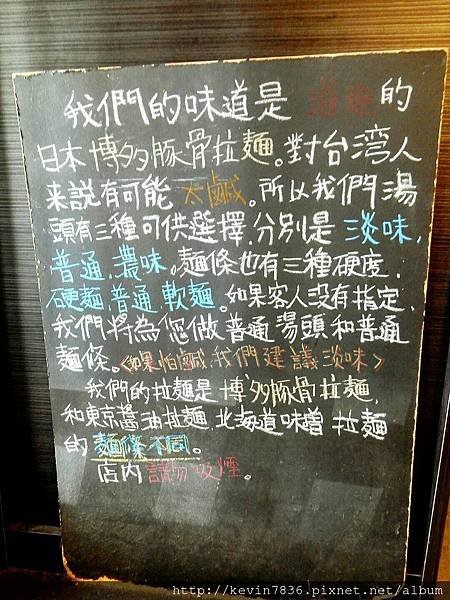 我們的味道是 道地的
日本博多豚骨拉麵。對台湾人
来說有可能太鹹。所以我們湯
頭有三種可供選擇,分別是淡味,
普通,濃味。麵條也有三種硬度,
硬麵,普通,軟麵。如果客人沒有指定,
我們將為您做普通湯頭和普通
麵條。<如果怕鹹,我們建議淡味>
我們的拉麵是博多豚骨拉麵,
和東京醬油拉麵 北海道味噌拉麵
的麵條不同。
店内請勿吸煙。
http://kevin7836.pixnet.net/album